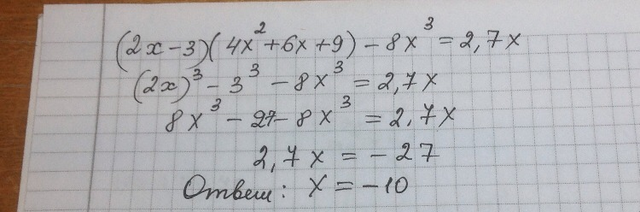 (2x-3)(4x²+6x+9)-8x³=2,7x
(2x)³-3³-8x³=2,7x
8x³-27-8x³=2,7x
2,7x=-27
Ответ: x=-10